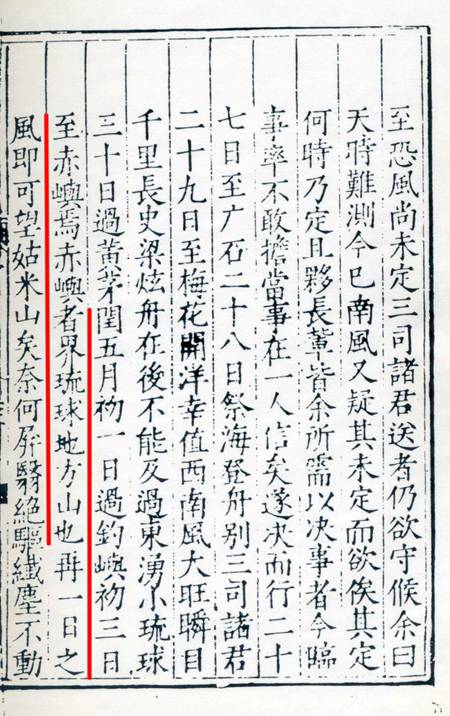 至恐風尚未定三司諸君送者仍欲守候余曰
天時難測今已南風又疑其未定而欲俟其定
何時乃定且夥長軰皆余所需以决事者今臨
事率不敢擔當事在一人信矣遂决而行二十
七日至广石二十八日祭海登舟别三司諸君
二十九日至梅花開洋幸值西南風大旺瞬目
千里長史梁炫舟在後不能及過東湧小琉球
三十日過黄茅閏五月初一日過釣嶼初三日
至赤嶼焉赤嶼者界琉球地方山也再一日之
風即可望姑米山矣奈何屏翳絕驅纖塵不動